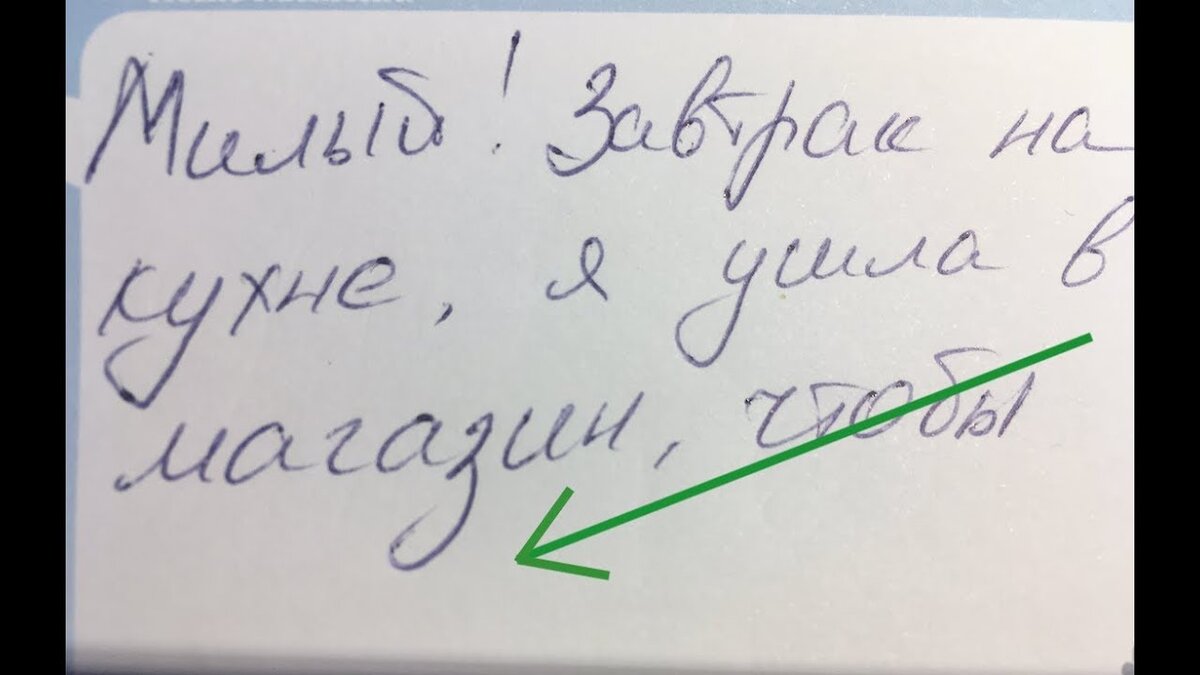 Милый! Завтрак на
кухне, я ушла в
магазин, чтобы